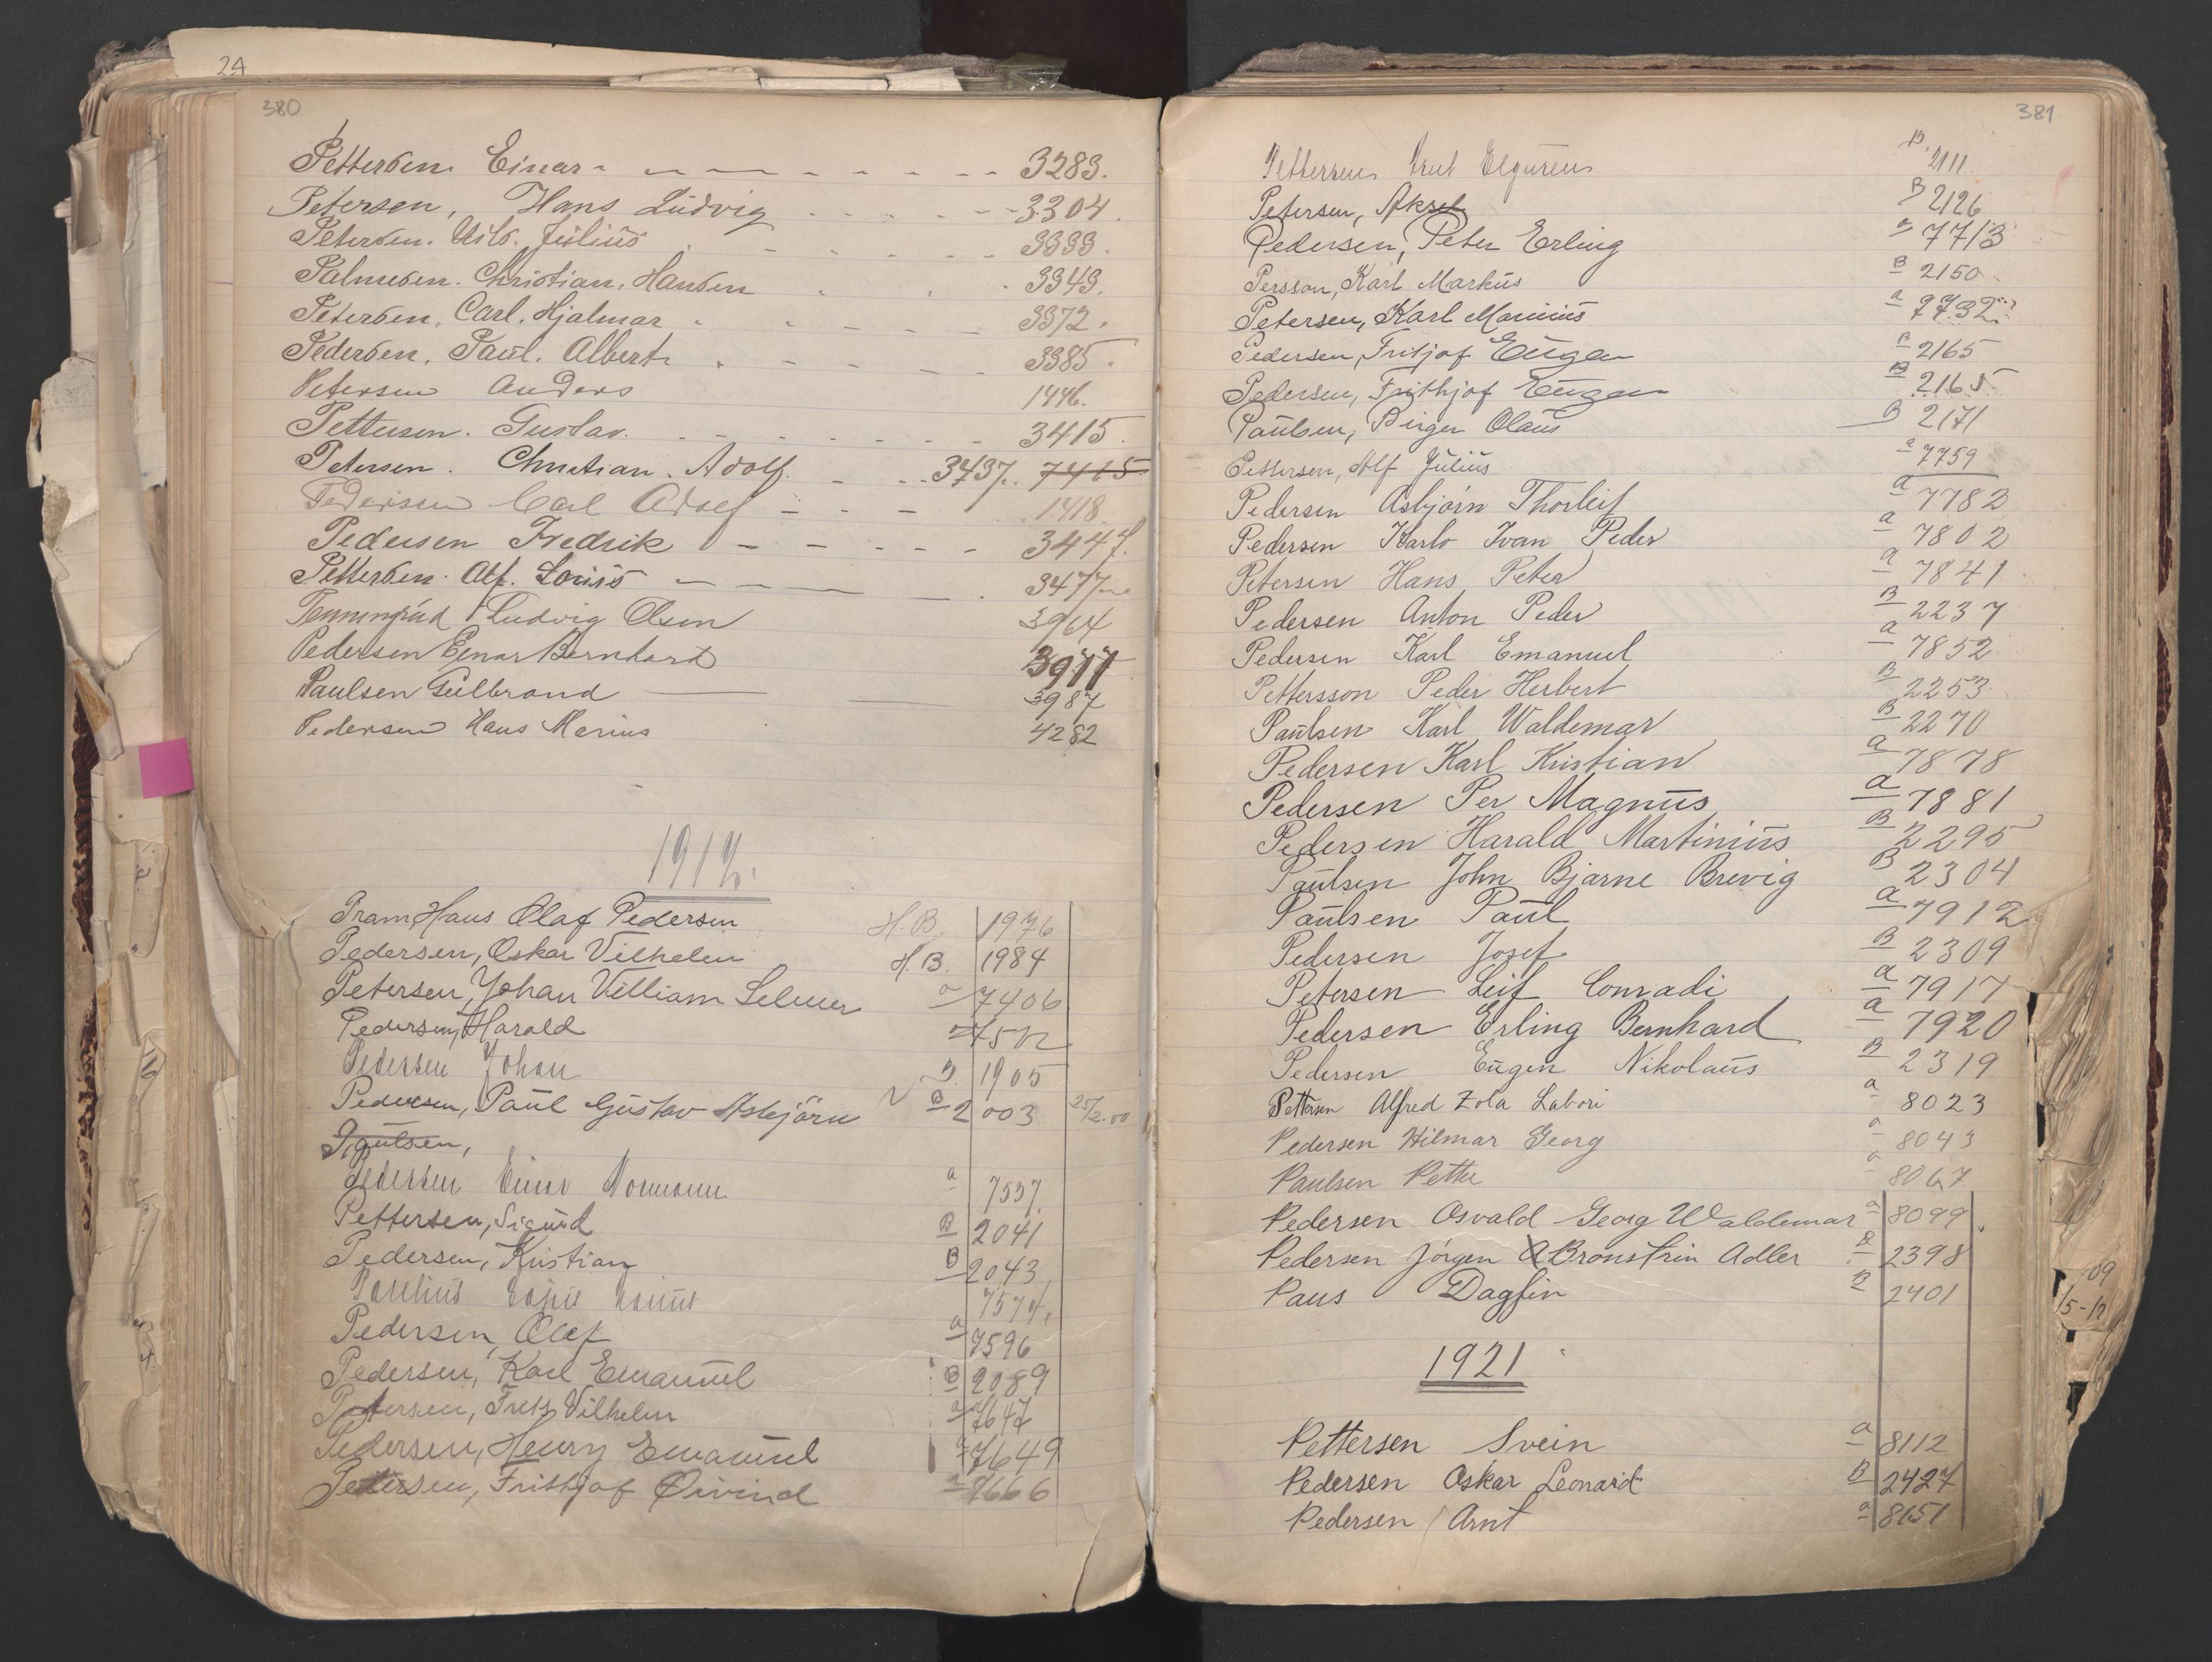 24
380
Pettersen Einar 3283.
Petersen, Hans Ludvig 3304.
Petersen. Nils. Julius 3333.
Palmesen. Christian. Hansen 3343.
Petersen. Carl. Hjalmar 3372.
Pedersen. Paul. Albert. 3385.
Petersen Anders 1446.
Pettersen. Gustav. 3415.
Petersen. Christian. Adolf. 3437. 7415
Pedersen Carl Adolf 1418
Pedersen Fredrik 3447.
Pettersen. Alf. Louis 3477
Ludvig Olsen 3964
Pedersen Ejnar Bernhard 3977
Paulsen Gulbrand 3987
Pedersen Hans Marius 4282
Pram, Hans Olaf Pedersen H.B. 1976
Pedersen, Oskar Vilhelm H.B. 1984
Petersen, Johan Villiam Selmer a 7406
Pedersen, Harald
Pedersen Johan B. 1905
Pedersen, Paul Gustav Asbjörn B 2003 25/2.00
Paulsen,
Pedersen Einar Normann a 7557.
Pettersen, Sigurd B 2041
Pedersen, Kristian B 2043
7574.
Pedersen, Olaf a 7596
Pedersen, Karl Emanuel B 2089
Petersen, Fretz Vilhelm a 7647
Pedersen, Henry Emanuel a 7649
Petersen, Frithjof Øivind a 7666
381
Pettersen B. 2111.
Petersen, Aksel B 2126
Pedersen, Peter Erling a 7713
Persson, Karl Markus B 2150
Petersen, Karl Marinius a 7732
Pedersen, Fritjof Eugen B 2165
Pedersen, Frithjof Eugen B 2165
Paulsen, Birger Olaus B 2171
Pettersen, Alf Julius a 7759
Pedersen Asbjørn Thorleif a 7782
Pedersen Karlo Ivan Peder a 7802
Petersen Hans Peter a 7841
Pedersen Anton Peder B 2237
Pedersen Karl Emanuel a 7852
Pettersson Peder Herbert B 2253
Paulsen Karl Waldemar B 2270
Pedersen Karl Kristian a 7878
Pedersen Per Magnus a 7881
Pedersen Harald Martinius B 2295
Paulsen John Bjarne Brevig B 2304
Paulsen Paul a 7912
Pedersen Josef B 2309
Petersen Leif Conradi a 7917
Pedersen Erling Bernhard a 7920
Pedersen Eugen Nikolaus B 2319
Pettersen Alfred Zola Labori a 8023
Pedersen Hilmar Georg a 8043
Paulsen Petter a 8067
Pedersen Osvald Georg Waldemar a 8099
Pedersen Jørgen Bronstrin Adler B 2398
Paus Dagfin B 2401
1921
Pettersen Svein a 8112
Pedersen Oskar Leonard B 2427
Pedersen Arnt a 8151
09
15-19